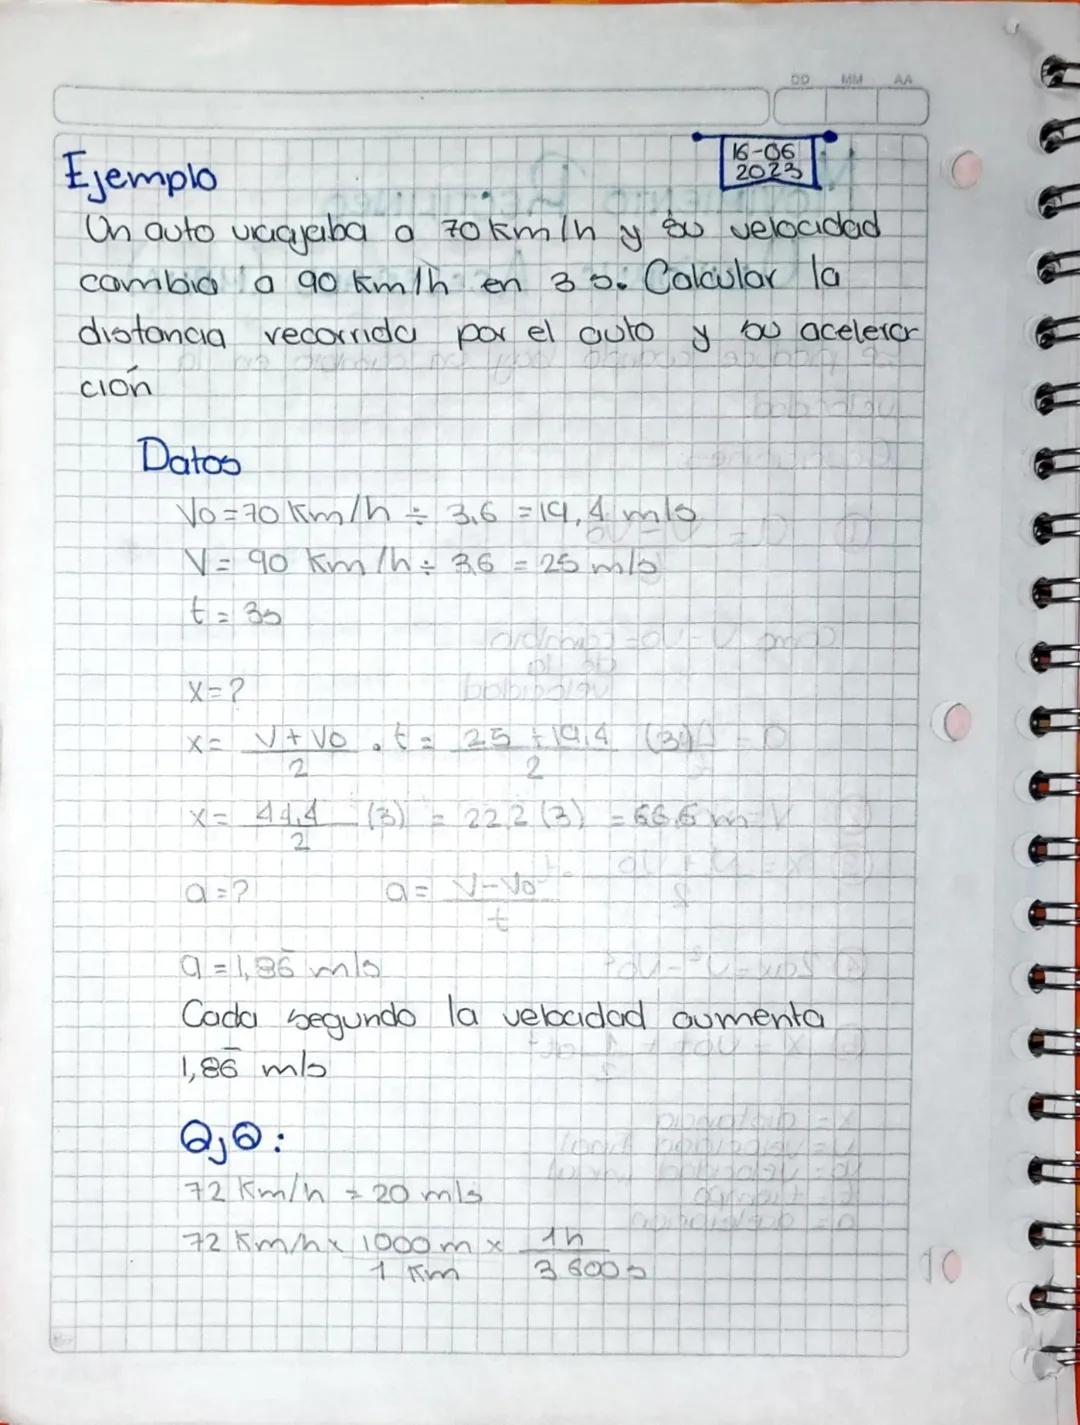 DD MM AA
16-06
2023
Ejemplo
Un auto viajaba a 70 km/h y su velocidad
cambia a 90 km/h en 3 s. Calcular la
distancia recorrida por el auto y su acelera
ción
Datos
Vo=70 km/h ÷ 3,6 = 19,4 m/s
V= 90 km/h ÷ 3,6 = 25 m/s
t = 3s
x=?
x= V+Vo/2 . t = 25+19,4/2 (3)
x= 44,4/2 (3) = 22,2 (3) = 66,6 m
a=? a= V-Vo/t
a=1,86 m/s
Cada segundo la velocidad aumenta
1,86 m/s
72 km/h = 20 m/s
72 km/h x 1000 m/1 km x 1h/3600s